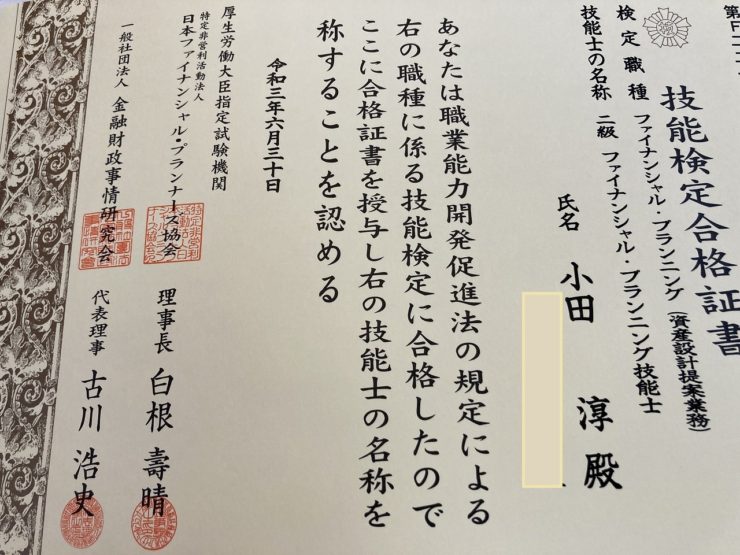 技能検定合格証書
検定職種 ファイナンシャル・プランニング(資産設計提案業務)
技能士の名称 二級 ファイナンシャル・プランニング技能士
氏名 小田 淳殿
あなたは職業能力開発促進法の規定による
右の職種に係る技能検定に合格したので
ここに合格証書を授与し右の技能士の名称を
称することを認める
令和三年六月三十日
厚生労働大臣指定試験機関
特定非営利活動法人
日本ファイナンシャル・プランナーズ協会 理事長 白根壽晴
一般社団法人 金融財政事情研究会 代表理事 古川浩史